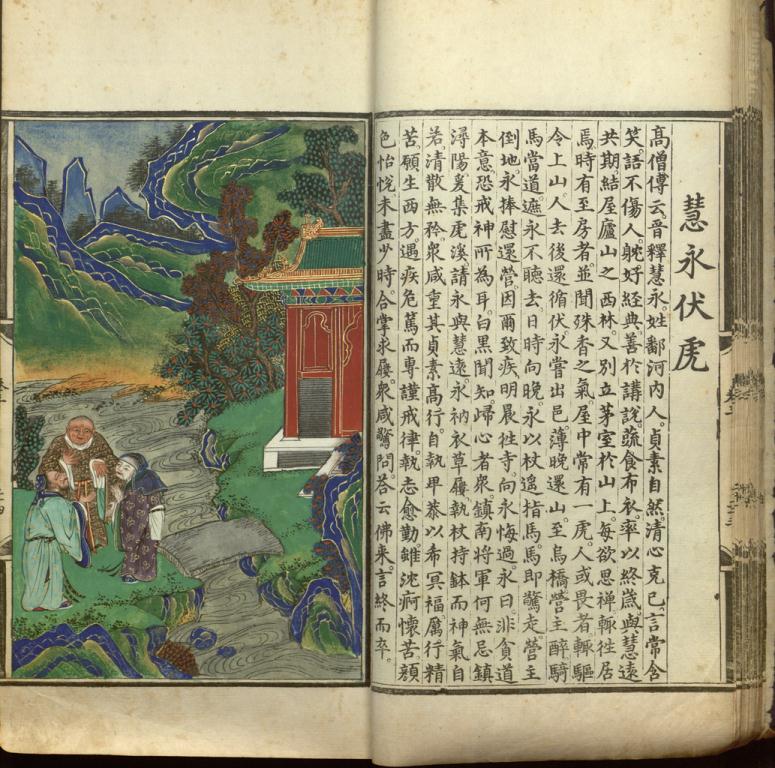 慧永伏虎
高僧傳云。晉釋慧永。姓鄱河內人。貞素自然。清心克己。言常含
笑。語不傷人。躭好經典。善於講說。蔬食布衣。率以終歲。與慧遠
共期。結屋廬山之西林。又別立茅室於山上。每欲思禪。輒徃居
焉。時有至房者。並聞殊香之氣。屋中常有一虎。人或畏者。輒驅
令上山。人去後還循伏。永嘗出邑。薄晚還山。至烏橋。營主醉騎
馬當道。遮永不聽去。日時向晚。永以杖遙指馬。馬即驚走。營主
倒地。永捧慰還營。因爾致疾。明晨徃寺。向永悔過。永曰。非貧道
本意。恐戒神所為耳。白黑聞知。歸心者衆。鎮南將軍何無忌。鎮
潯陽。爰集虎溪。請永與慧遠。永衲衣草屨。執杖持鉢。而神氣自
若。清散無矜。衆咸重其貞素。高行自執。卑恭以希冥福。厲行精
苦。願生西方。遇疾危篤。而專謹戒律。執志愈勤。雖沈痾懷苦。顏
色怡悅。未盡少時。合掌求屨。衆咸驚問。答云佛來。言終而卒。